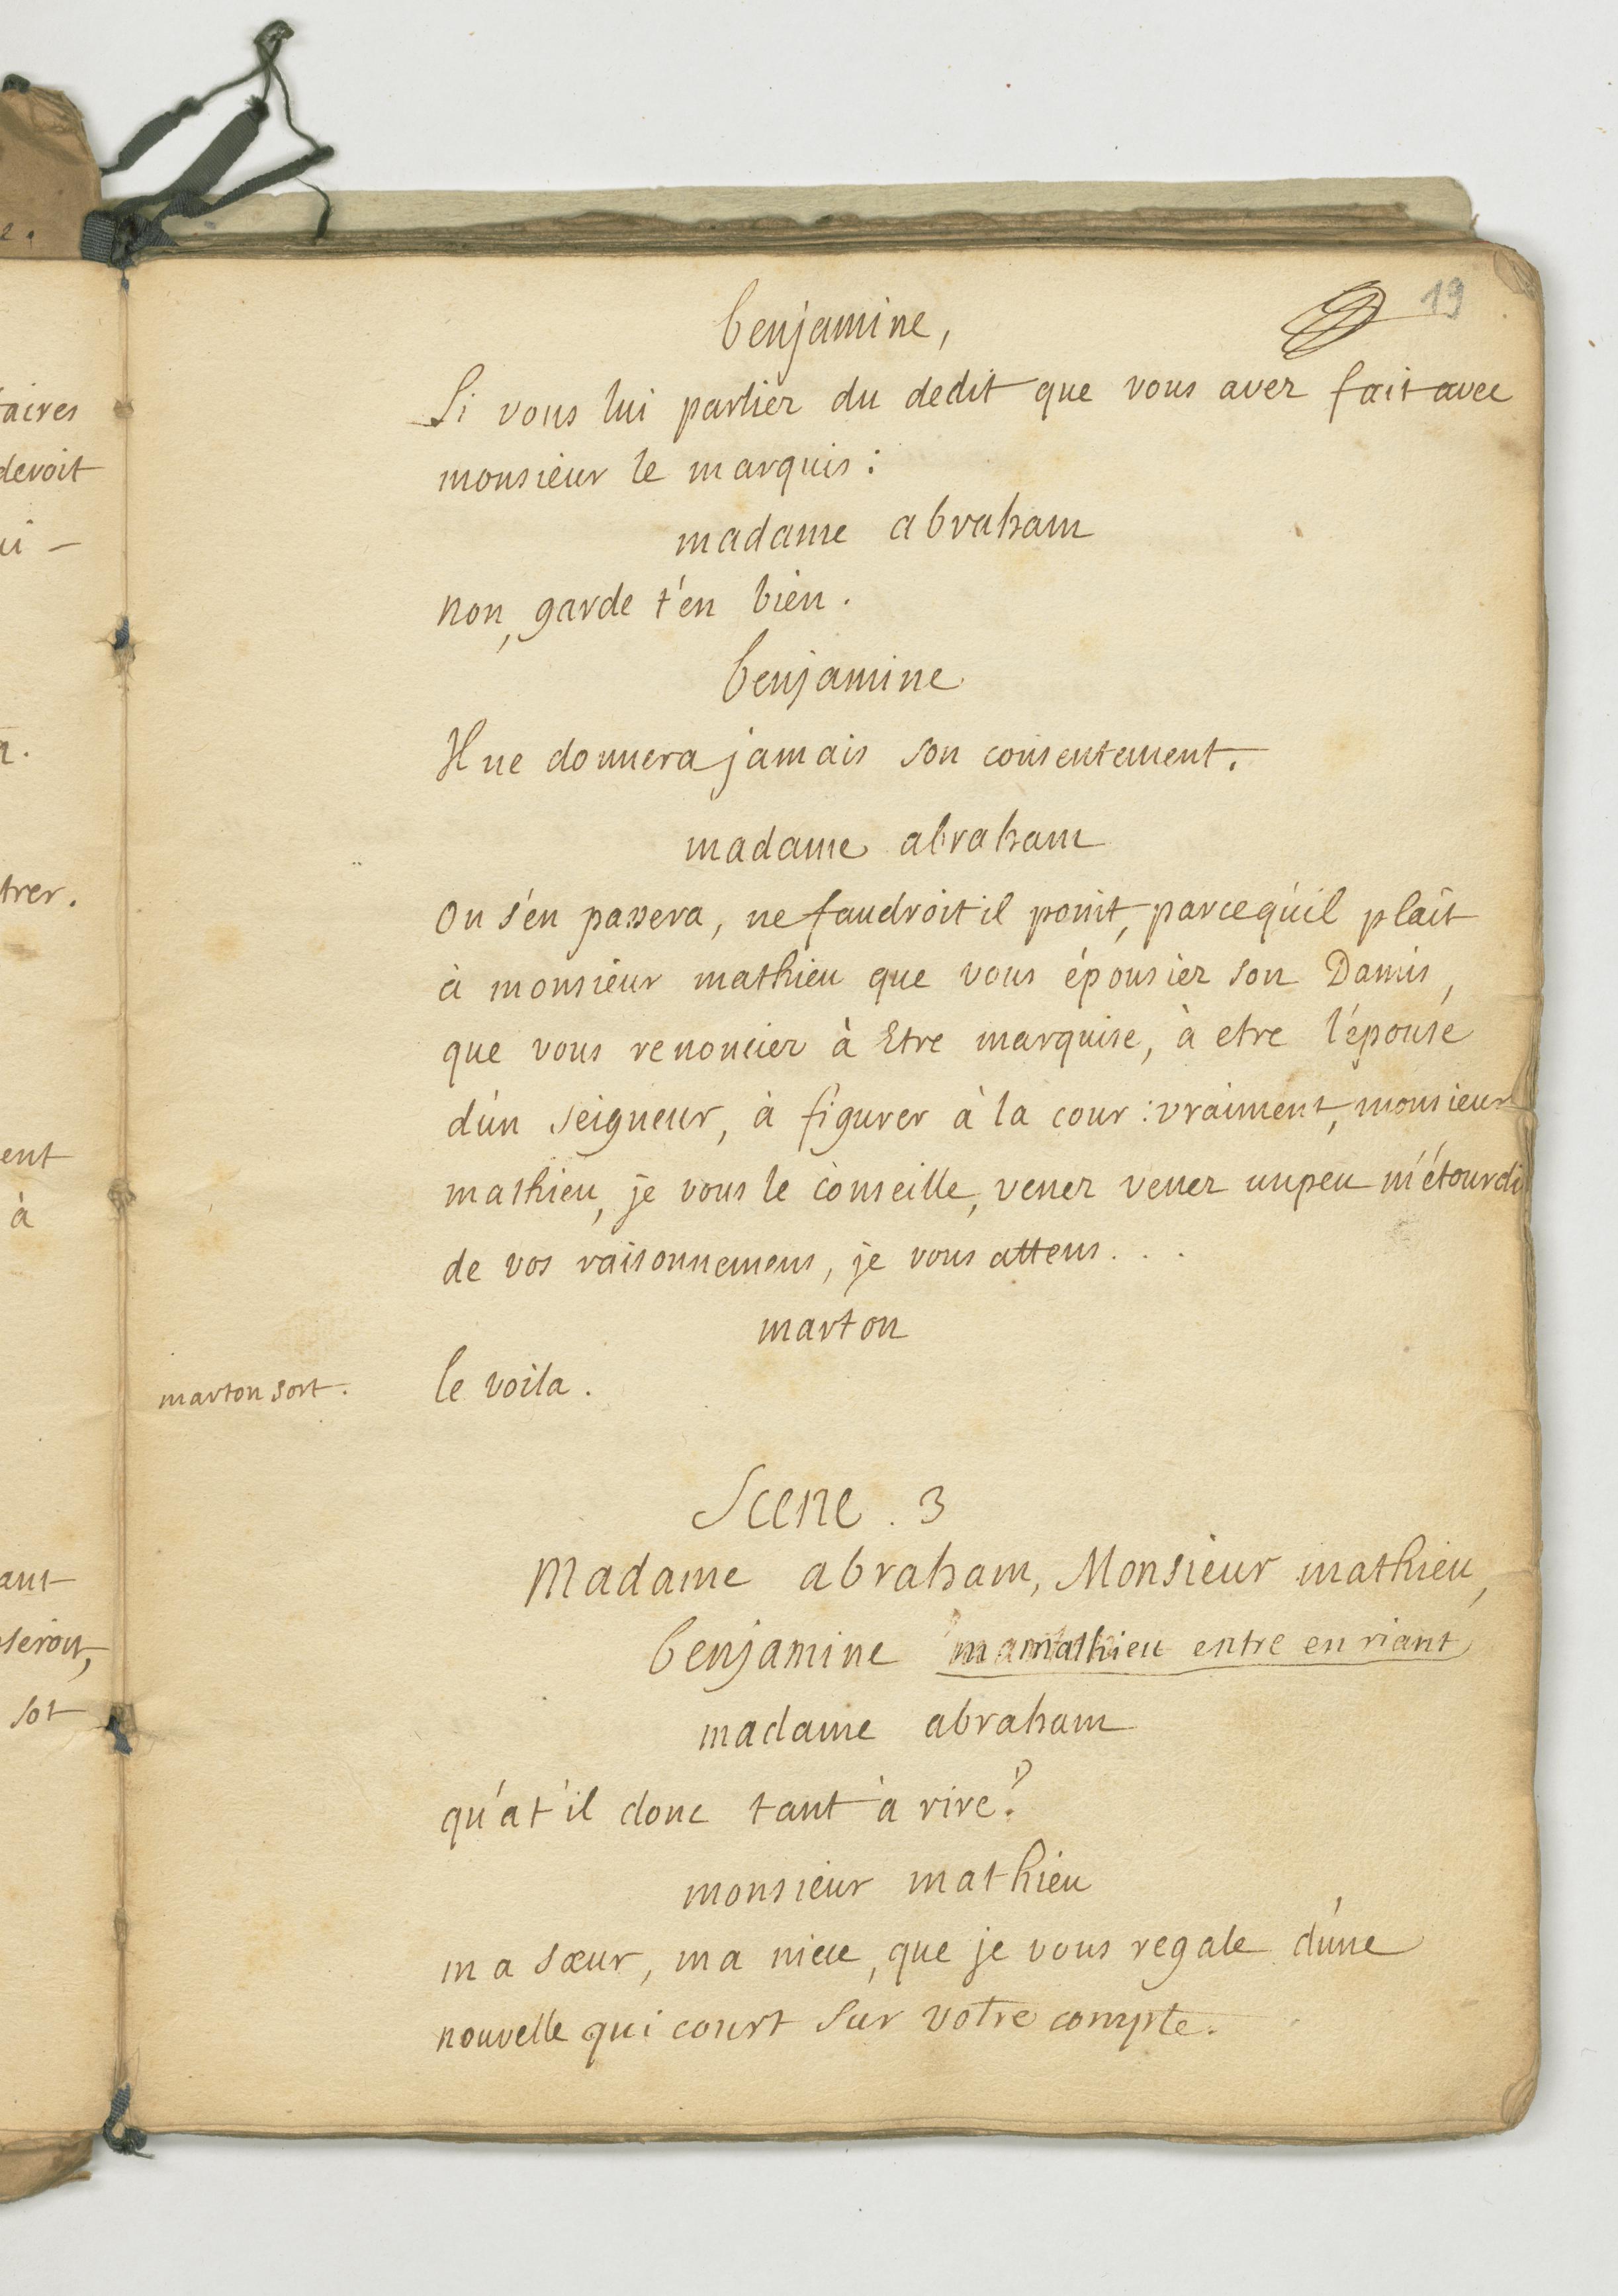 19
benjamine,
Si vous lui parliez du dedit que vous avez fait avec
monsieur le marquis :
madame abraham
non, garde t'en bien.
benjamine
Il ne donnera jamais son consentement.
madame abraham
On s'en passera, ne faudroit il point, parcequ'il plaît
à monsieur mathieu que vous épousiez son Damis,
que vous renonciez à Etre marquise, à etre l'épouse
d'un seigneur, à figurer à la cour : vraiment, monsieur
mathieu, je vous le conseille, venez venez unpeu m'étourdi
de vos raisonnemens, je vous attens...
marton
marton sort. le voila.
Scene. 3
Madame abraham, Monsieur mathieu,
benjamine mathieu entre en riant
madame abraham
qu'at'il donc tant à rire?
monsieur mathieu
ma sœur, ma niece, que je vous regale d'une
nouvelle qui court sur votre compte.
aires
devoit
ui -
trer.
ent
à
ant
seroit,
sot